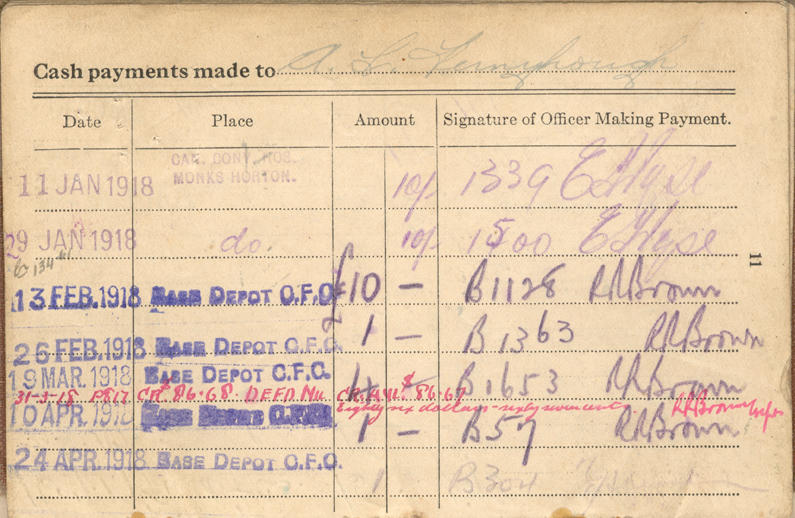 Cash payments made to A. L.
Date Place Amount Signature of Officer Making Payment.
CAN. CONV. HOS.
11 JAN 1918 MONKS HORTON. 10/- 1339
29 JAN 1918 do. 10/- 1500
11
13 FEB. 1918 BASE DEPOT C.F.C. £10 — B1128 RRBrown
26 FEB. 1918 BASE DEPOT C.F.C. 1 — B1363 RRBrown
19 MAR. 1918 BASE DEPOT C.F.C. — B1653 RRBrown
31-3-18 CR $86.68 DEFD Nil CR. $86.67
Eighty six dollars - sixty seven cents RRBrown
10 APR. 1918 BASE DEPOT C.F.C. 1 — B57 RRBrown
24 APR. 1918 BASE DEPOT C.F.C. 1 B304